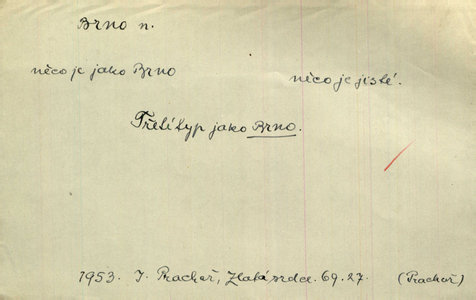 Brno n.
něco je jako Brno něco je jisté.
Třetí typ jako Brno.
1953. J. Prachař, Zlatá srdce. 69.27. (Prachař)